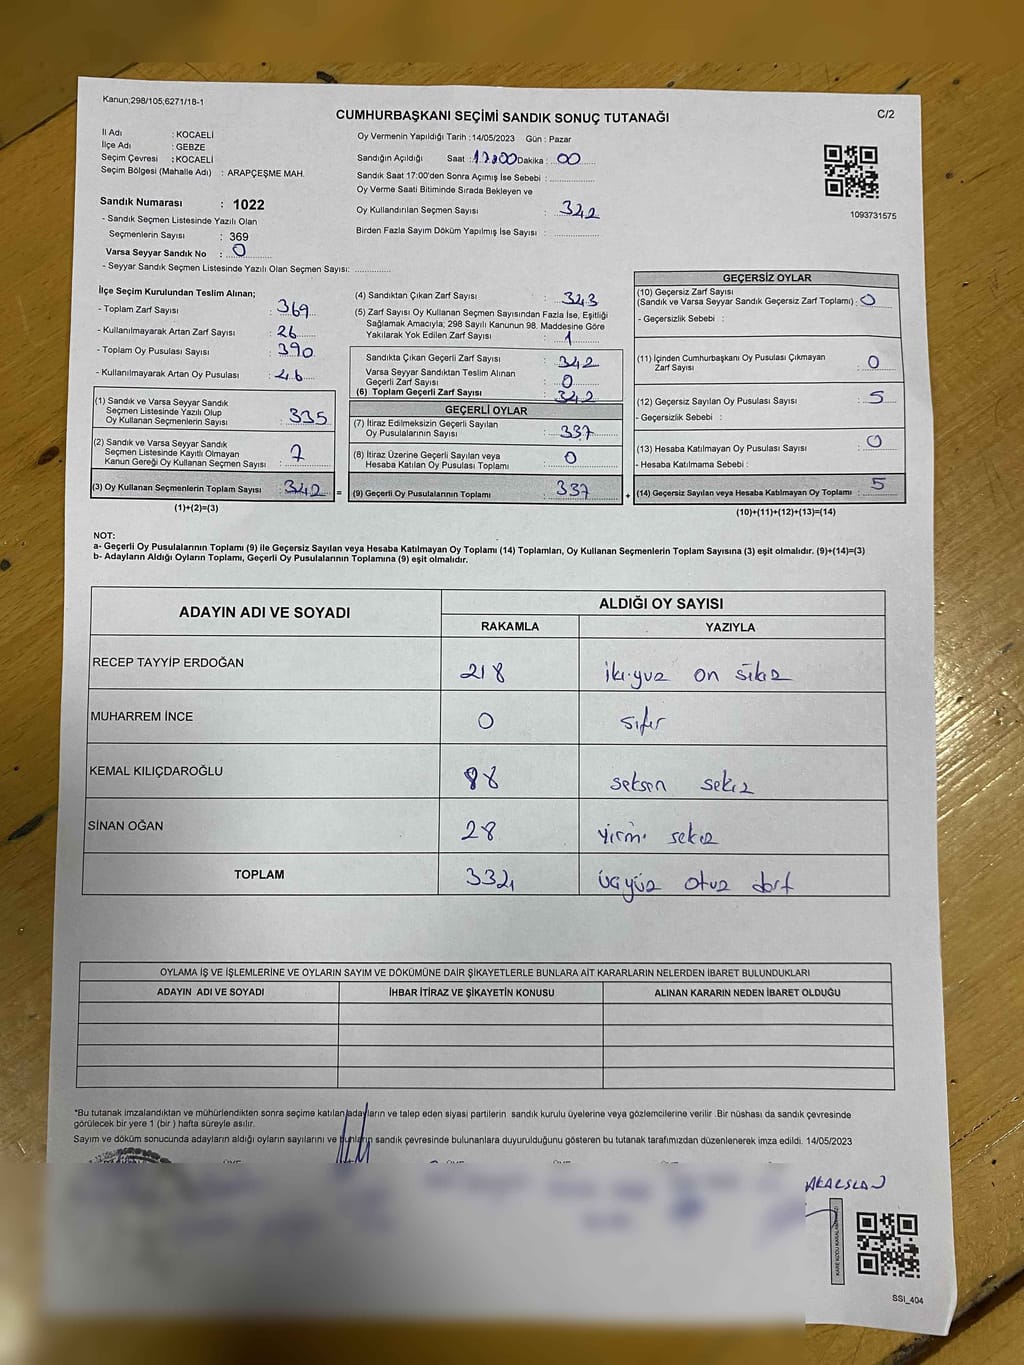 Kanun;298/105;6271/18-1
CUMHURBAŞKANI SEÇİMİ SANDIK SONUÇ TUTANAĞI
C/2
İl Adı : KOCAELİ
İlçe Adı : GEBZE
Seçim Çevresi : KOCAELİ
Seçim Bölgesi (Mahalle Adı) : ARAPÇEŞME MAH.
Sandık Numarası : 1022
- Sandık Seçmen Listesinde Yazılı Olan
Seçmenlerin Sayısı : 369
Varsa Seyyar Sandık No : 0
- Seyyar Sandık Seçmen Listesinde Yazılı Olan Seçmen Sayısı: ..............
Oy Vermenin Yapıldığı Tarih :14/05/2023 Gün : Pazar
Sandığın Açıldığı Saat : Dakika : 00
Sandık Saat 17:00'den Sonra Açımış İse Sebebi : ..............
Oy Verme Saati Bitiminde Sırada Bekleyen ve
Oy Kullandırılan Seçmen Sayısı : 342
Birden Fazla Sayım Döküm Yapılmış İse Sayısı : ..............
1093731575
İlçe Seçim Kurulundan Teslim Alınan;
- Toplam Zarf Sayısı : 369
- Kullanılmayarak Artan Zarf Sayısı : 26
- Toplam Oy Pusulası Sayısı : 390
- Kullanılmayarak Artan Oy Pusulası : 46
(1) Sandık ve Varsa Seyyar Sandık
Seçmen Listesinde Yazılı Olup
Oy Kullanan Seçmenlerin Sayısı : 335
(2) Sandık ve Varsa Seyyar Sandık
Seçmen Listesinde Kayıtlı Olmayan
Kanun Gereği Oy Kullanan Seçmen Sayısı : 7
(3) Oy Kullanan Seçmenlerin Toplam Sayısı : 342 =
(1)+(2)=(3)
(4) Sandıktan Çıkan Zarf Sayısı : 343
(5) Zarf Sayısı Oy Kullanan Seçmen Sayısından Fazla İse, Eşitliği
Sağlamak Amacıyla; 298 Sayılı Kanunun 98. Maddesine Göre
Yakılarak Yok Edilen Zarf Sayısı : 1
Sandıkta Çıkan Geçerli Zarf Sayısı : 342
Varsa Seyyar Sandıktan Teslim Alınan
Geçerli Zarf Sayısı : 0
(6) Toplam Geçerli Zarf Sayısı : 342
GEÇERLİ OYLAR
(7) İtiraz Edilmeksizin Geçerli Sayılan
Oy Pusulalarının Sayısı : 337
(8) İtiraz Üzerine Geçerli Sayılan veya
Hesaba Katılan Oy Pusulası Toplamı : 0
(9) Geçerli Oy Pusulalarının Toplamı : 337 +
GEÇERSİZ OYLAR
(10) Geçersiz Zarf Sayısı
(Sandık ve Varsa Seyyar Sandık Geçersiz Zarf Toplamı) : 0
- Geçersizlik Sebebi :
(11) İçinden Cumhurbaşkanı Oy Pusulası Çıkmayan
Zarf Sayısı : 0
(12) Geçersiz Sayılan Oy Pusulası Sayısı : 5
- Geçersizlik Sebebi :
(13) Hesaba Katılmayan Oy Pusulası Sayısı : 0
- Hesaba Katılmama Sebebi :
(14) Geçersiz Sayılan veya Hesaba Katılmayan Oy Toplamı : 5
(10)+(11)+(12)+(13)=(14)
NOT:
a- Geçerli Oy Pusulalarının Toplamı (9) ile Geçersiz Sayılan veya Hesaba Katılmayan Oy Toplamı (14) Toplamları, Oy Kullanan Seçmenlerin Toplam Sayısına (3) eşit olmalıdır. (9)+(14)=(3)
b- Adayların Aldığı Oyların Toplamı, Geçerli Oy Pusulalarının Toplamına (9) eşit olmalıdır.
ADAYIN ADI VE SOYADI
ALDIĞI OY SAYISI
RAKAMLA YAZIYLA
RECEP TAYYİP ERDOĞAN 218 ikiyüz on sekiz
MUHARREM İNCE 0 sıfır
KEMAL KILIÇDAROĞLU 88 seksen sekiz
SİNAN OĞAN 28 yirmi sekiz
TOPLAM 334 üçyüz otuz dört
OYLAMA İŞ VE İŞLEMLERİNE VE OYLARIN SAYIM VE DÖKÜMÜNE DAİR ŞİKAYETLERLE BUNLARA AİT KARARLARIN NELERDEN İBARET BULUNDUKLARI
ADAYIN ADI VE SOYADI İHBAR İTİRAZ VE ŞİKAYETİN KONUSU ALINAN KARARIN NEDEN İBARET OLDUĞU
*Bu tutanak imzalandıktan ve mühürlendikten sonra seçime katılan adayların ve talep eden siyasi partilerin sandık kurulu üyelerine veya gözlemcilerine verilir .Bir nüshası da sandık çevresinde
görülecek bir yere 1 (bir ) hafta süreyle asılır.
Sayım ve döküm sonucunda adayların aldığı oyların sayılarını ve bunların sandık çevresinde bulunanlara duyurulduğunu gösteren bu tutanak tarafımızdan düzenlenerek imza edildi. 14/05/2023
SSİ_404